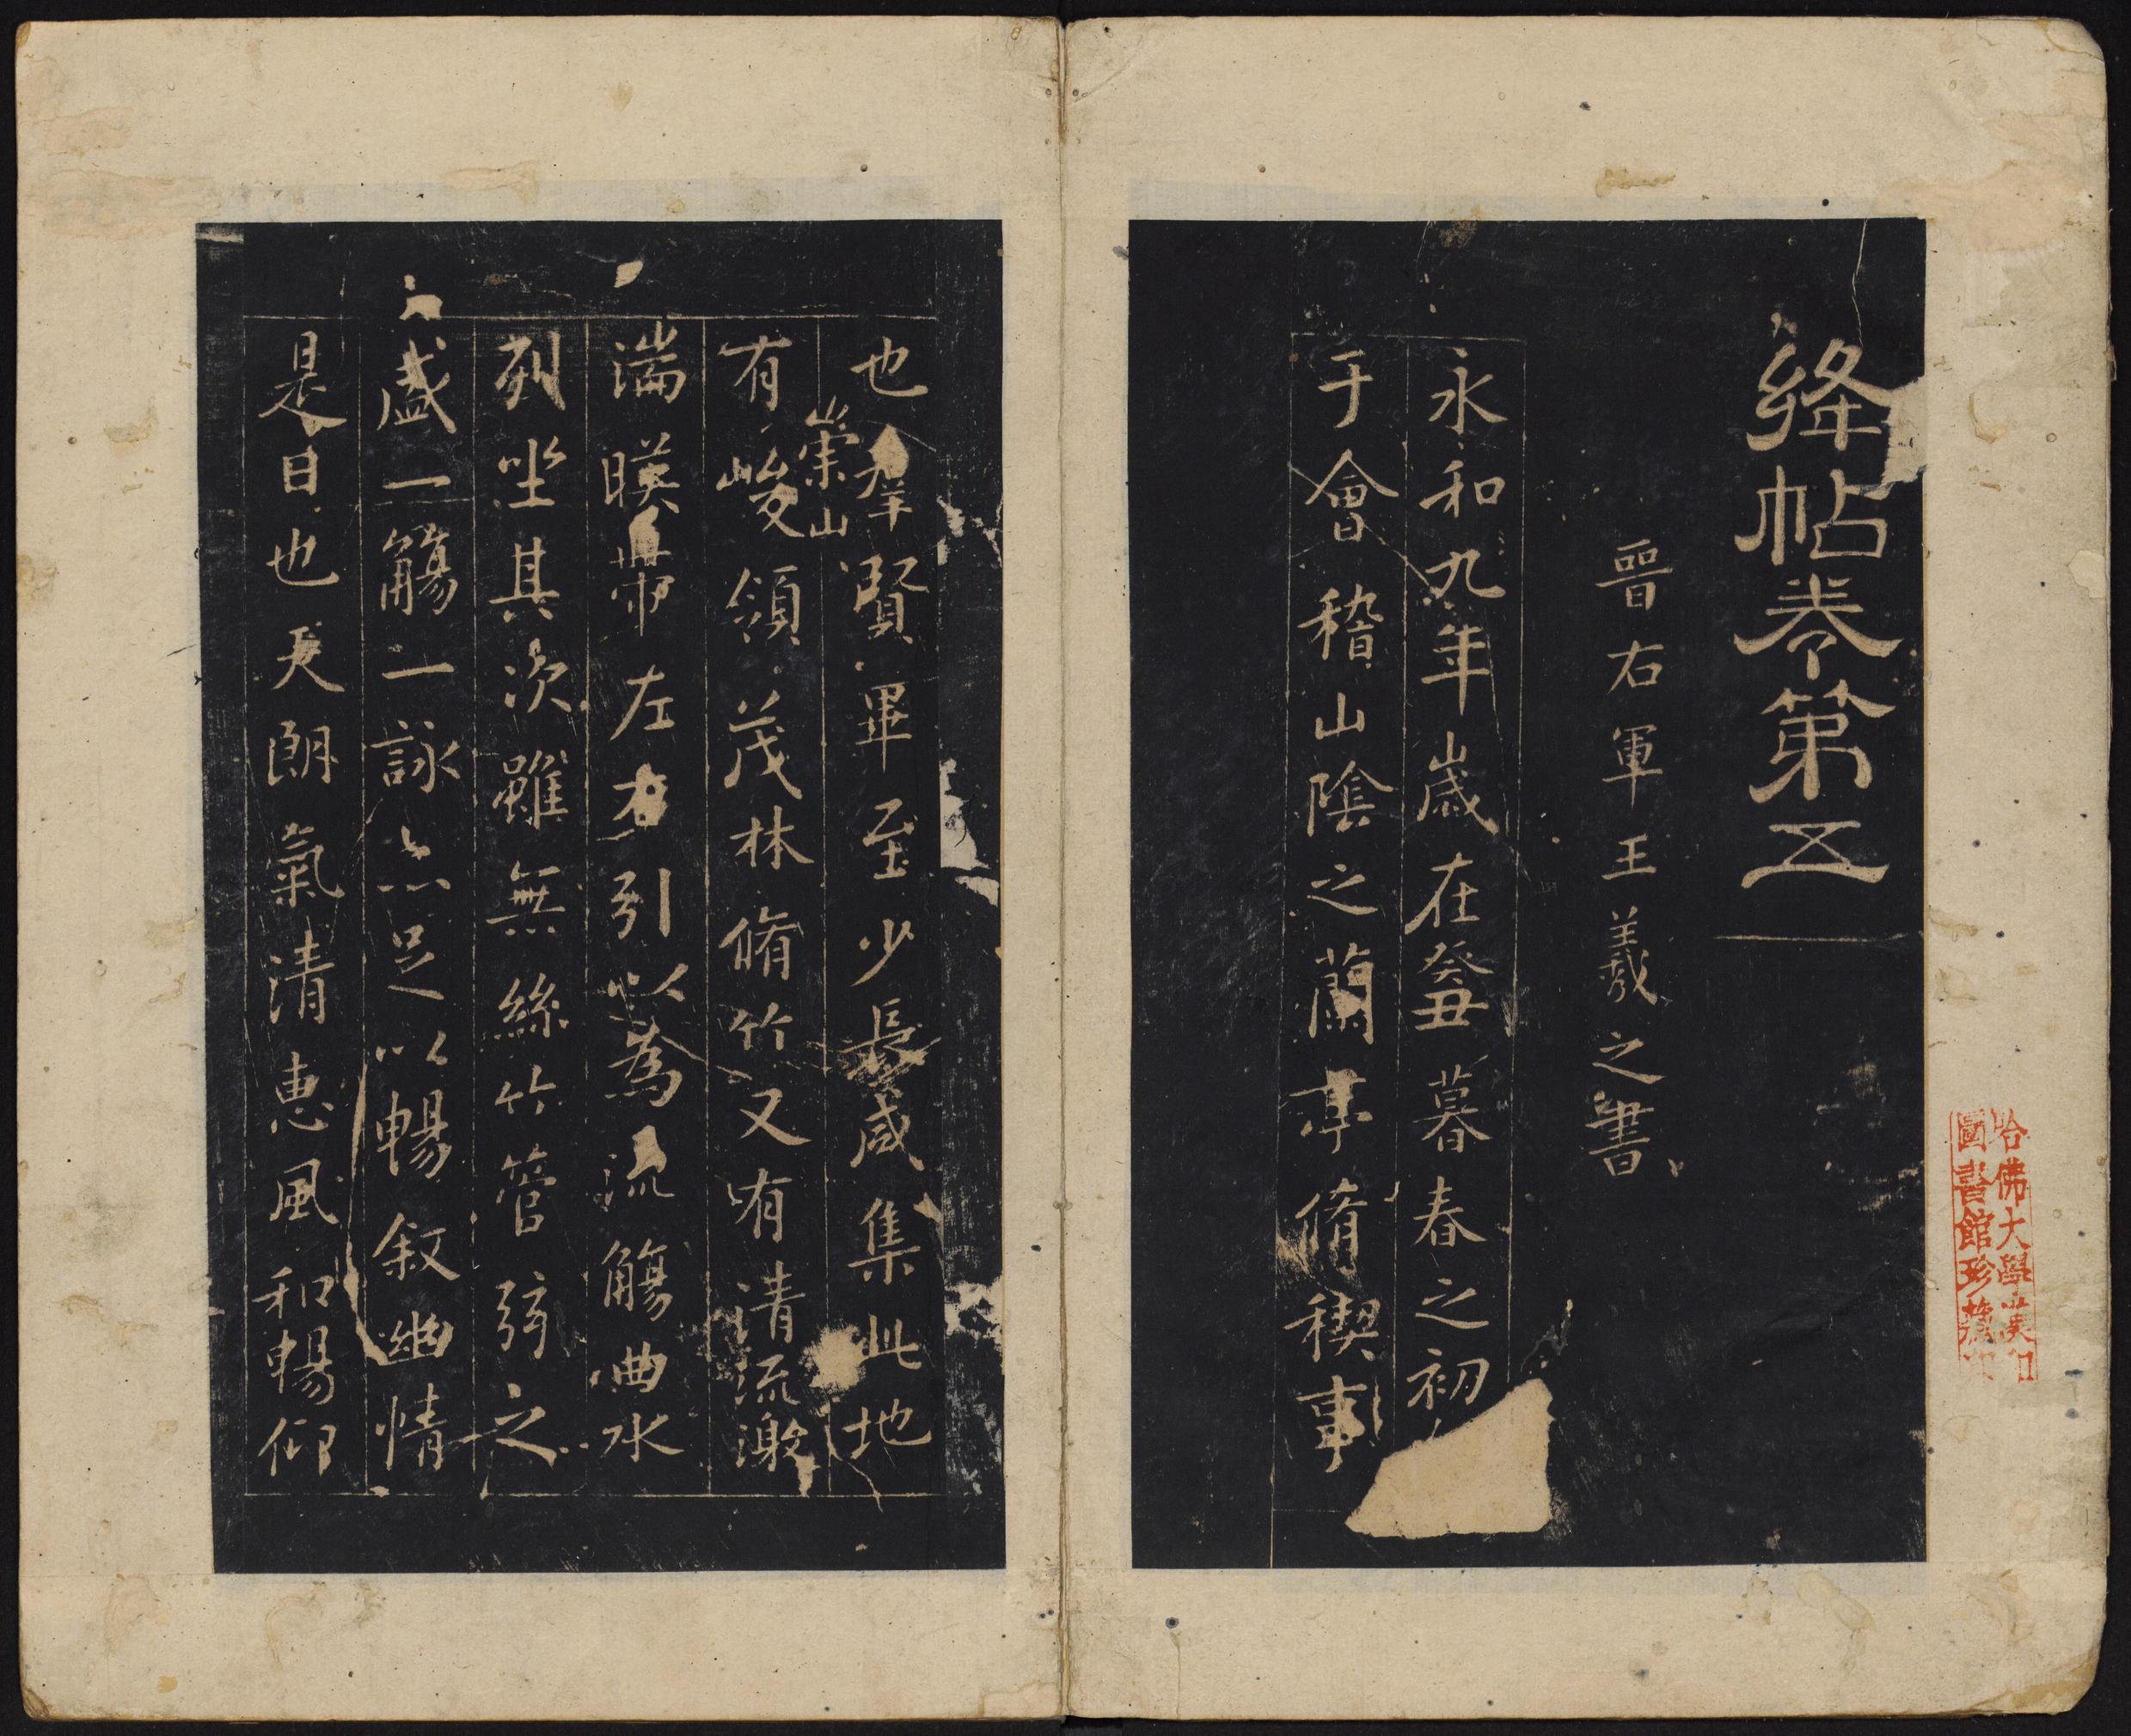 絳帖卷第五
晉右軍王羲之書
永和九年歲在癸丑暮春之初
于會稽山陰之蘭亭脩稧事
也群賢畢至少長咸集此地
崇山
有峻領茂林脩竹又有清流激
湍暎帶左右引以為流觴曲水
列坐其次雖無絲竹管弦之
盛一觴一詠亦足以暢敘幽情
是日也天朗氣清惠風和暢仰
哈佛大學漢和
圖書館珍藏印